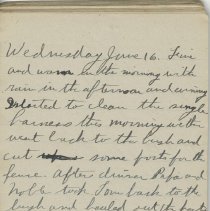 Wednesday June 16. Fine
and warm in the morning with
rain in the afternoon and evening
Started to clean the single
harness this morning within
went back to the bush and
cut some posts for the
fence. After dinner Papa and
took Tom back to the
bush and hauled out the posts